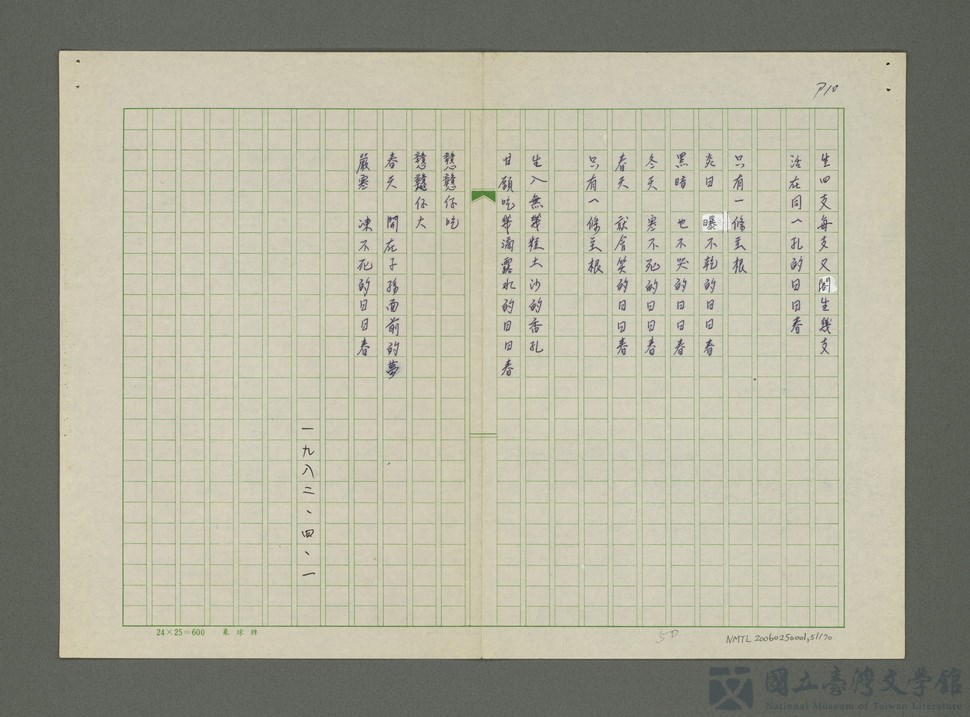 P10
生四支每支又開生幾支
活在同一孔的日日春
只有一條主根
炎日 曝不乾的日日春
黑暗 也不哭的日日春
冬天 寒不死的日日春
春天 就含笑的日日春
只有一條主根
生入無幾粒土沙的磚孔
甘願吃幾滴露水的日日春
憨憨仔吃
憨憨仔大
春天 開在子孫面前的夢
嚴寒 凍不死的日日春
一九八二、四、一
24×25=600
50
NMTL20060250001,51/70
國立臺灣文學館
National Museum of Taiwan Literature